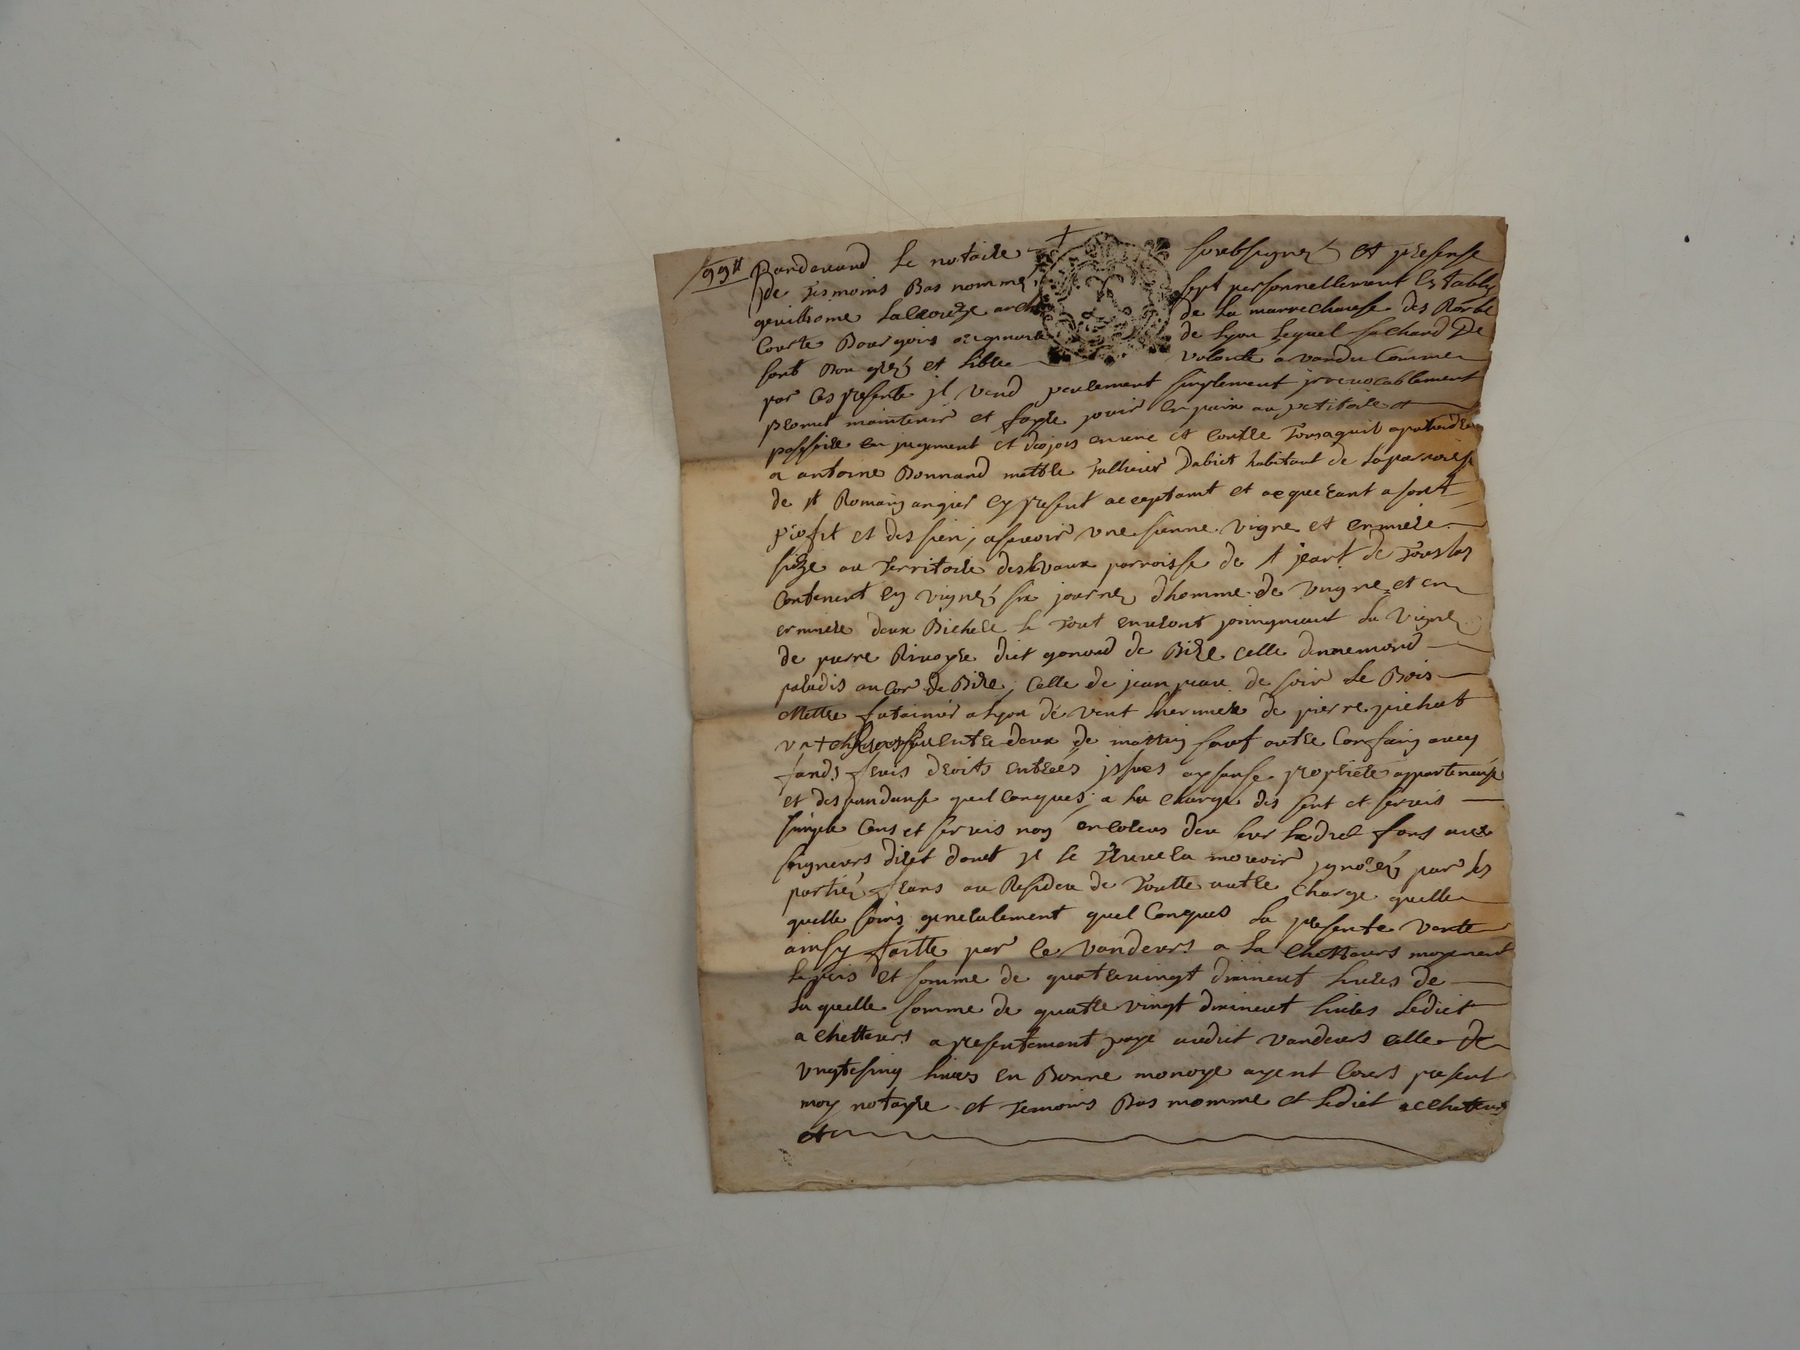 99tt
Pardevand Le notaire soubsigné et presense
de tesmoins Bas nommé sest personnellement Estably
guillome de La marrechausse des Robbe
Courte Bourgois de Lyon Lequel sachand De
sont Bon gré et libre volonte a vandu Comme
par Ces presente jl vend purement simplement jrrevocablement
promet maintenir et fayre jouir en paix au petitoire et
possoire en jugement et dejois envere et contre
a antoine Bonnand mattre tallieur Dabict habitant de La parroisse
de st Romain angier Cy present acceptant et acquerant a sont
profit et des sien, asscavoir vne sienne vigne et ermiere
size au Territoire desvaux parroisse de st jeant de Touslas
Contenent en vigne six journez dhomme de vigne et en
ermiere deux Bichere le tout environt joingnant La vigne
de pierre Rivoyre dict gonond de Bize celle
paradis au Cor de Bize, Celle de jean de soir Le Bois
Mettre a Lyon de vent Lhermiere de pierre pichat
entre deux de mattin sauf autre Confain avecq
fands droits entreés jssues aysanse propriete appartenanse
et despandanse quel Conques; a La Charge des sent et servis
simple Cens et servis non encoreus deu sur Ledict fons aux
seigneurs diret dont jl se treuvera mouvoir jgnoré par les
partiés frans au Resideu de toutte autre Charge quelle
quelle soint generalement quel Conques La presente vente
ainsy faitte par Ce vandeurs a La Chetteurs moyenent
Le pris et somme de quatrevingt dixneut livres de
La quelle somme de quatre vingt dixneut livres Ledict
a Chetteurs a presentement paye audict vandeurs celle de
vingtesinq livres en Bonne monoye ayent Cours present
moy notayre et temoins Bas nomme et Ledict acchetteurs
et